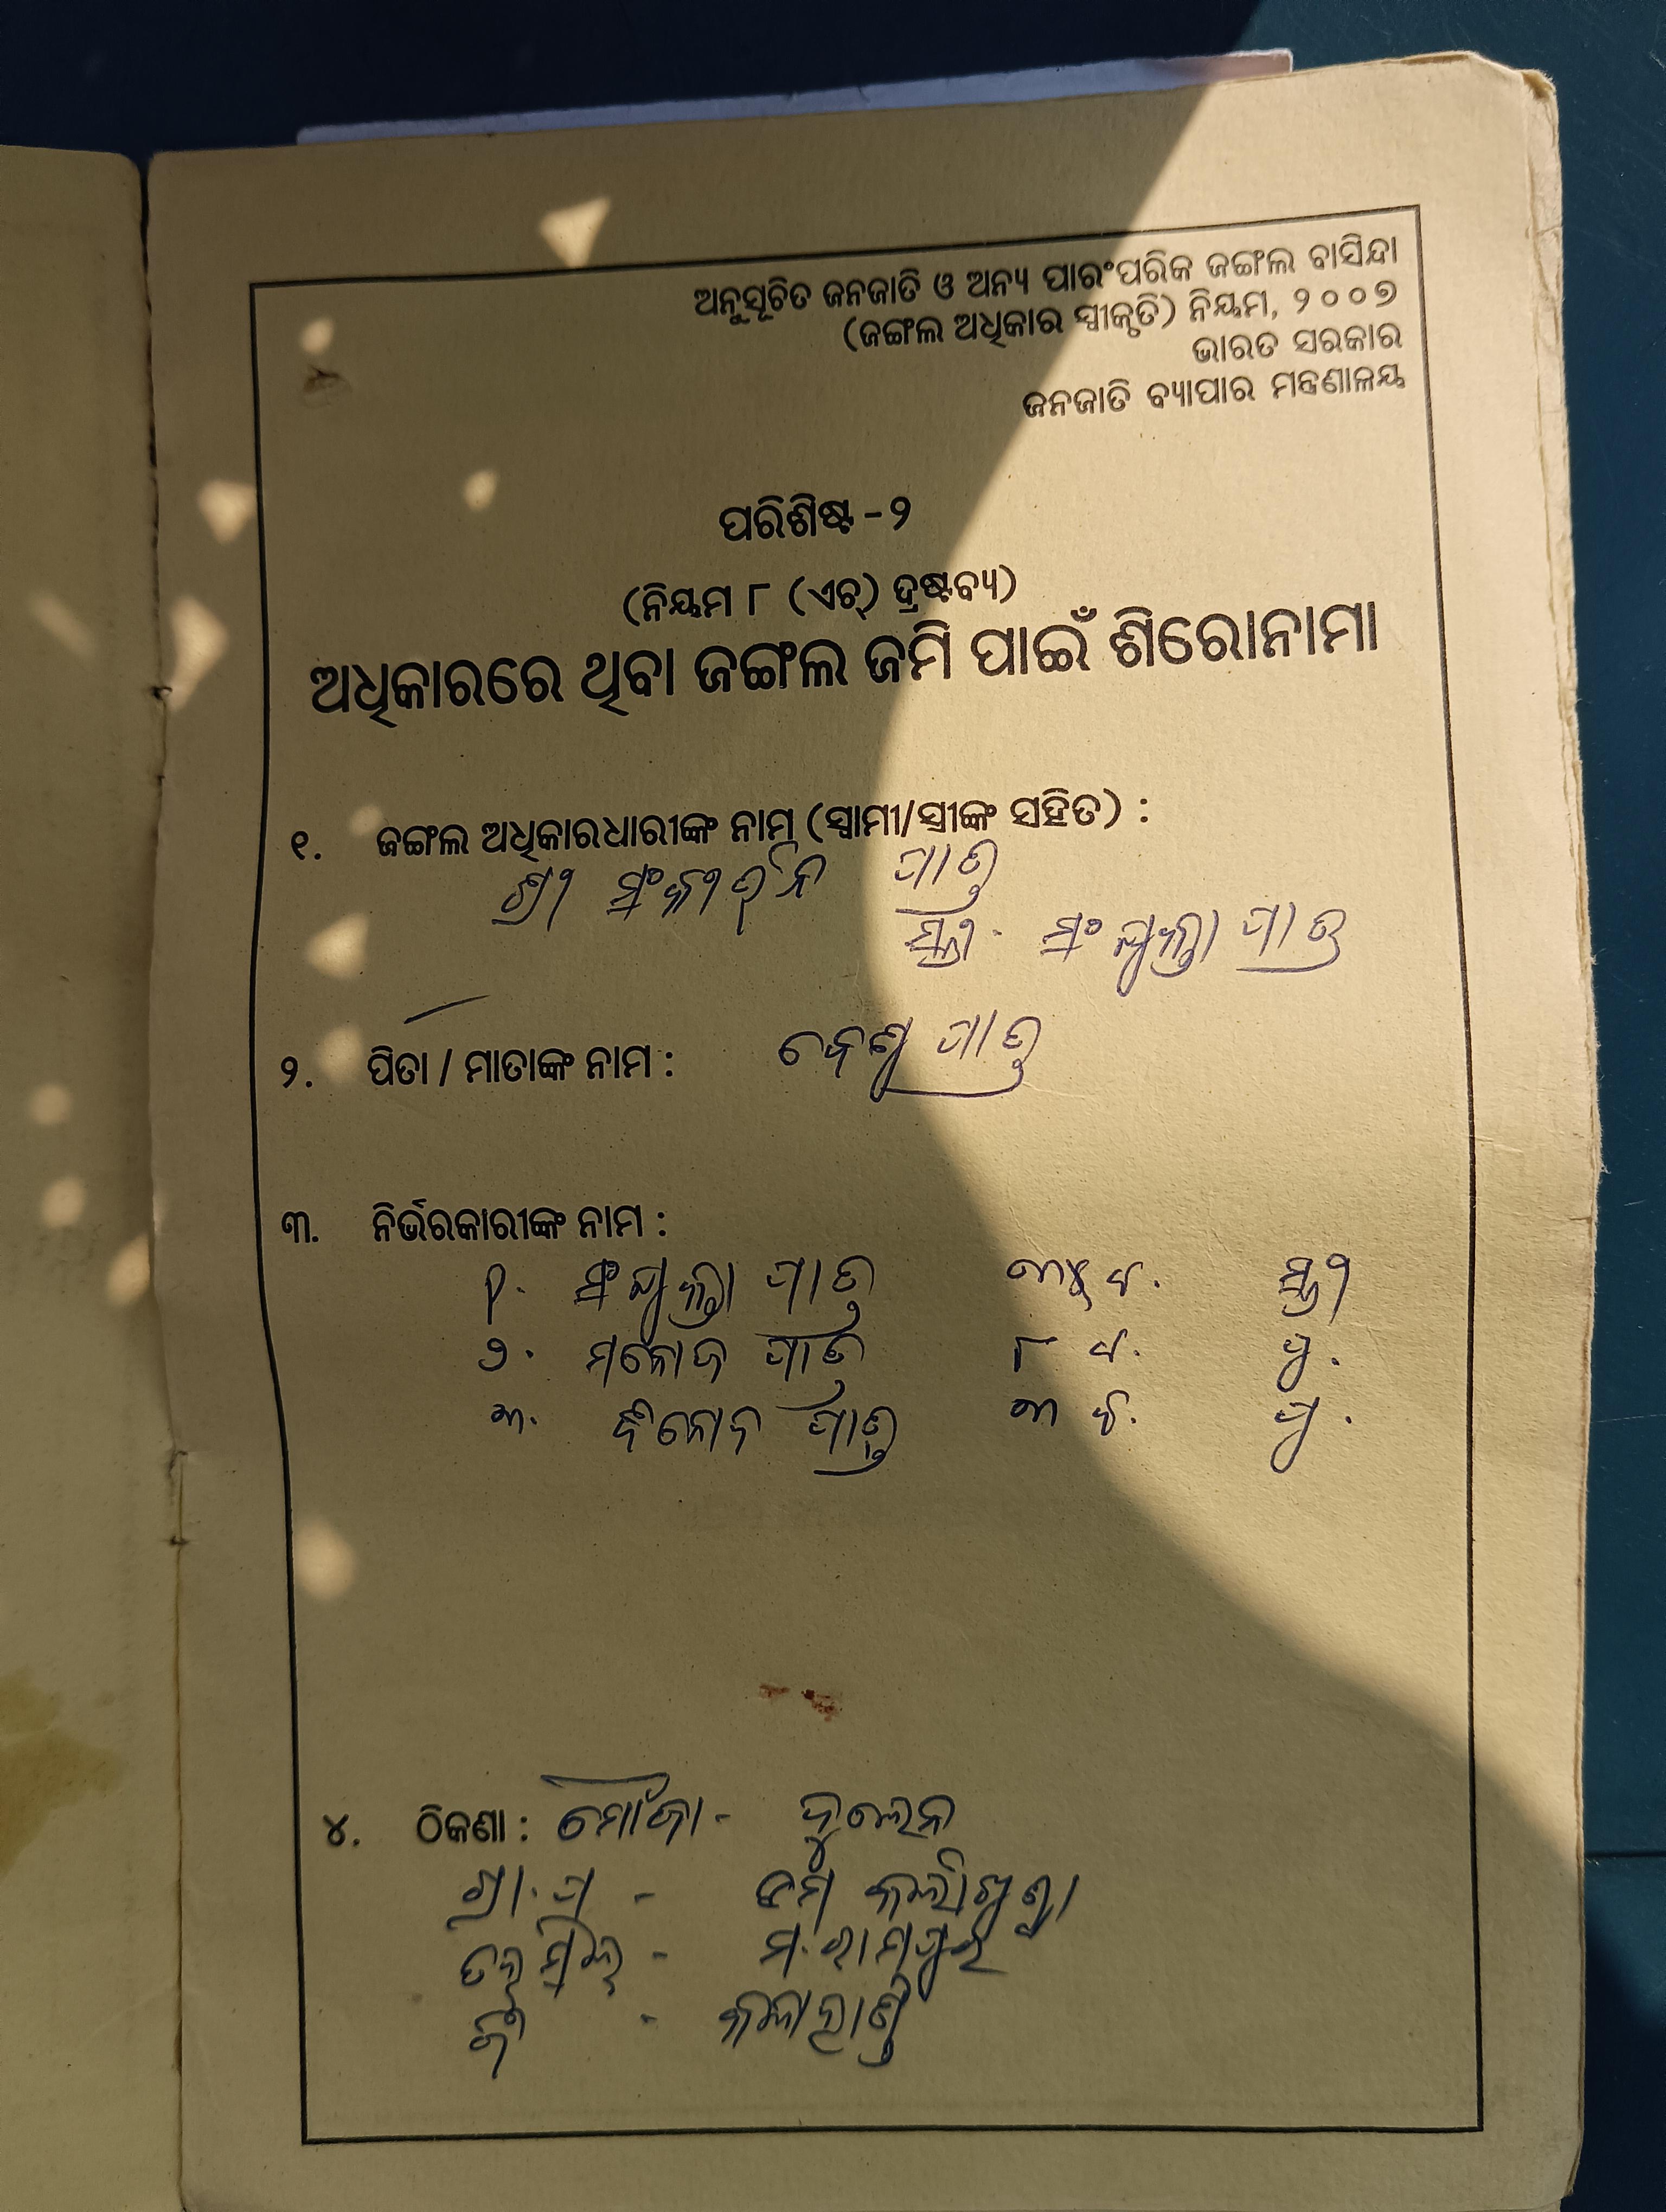 ଅନୁସୂଚିତ ଜନଜାତି ଓ ଅନ୍ୟ ପାରଂପରିକ ଜଙ୍ଗଲ ବାସିନ୍ଦା
(ଜଙ୍ଗଲ ଅଧିକାର ସ୍ୱୀକୃତି) ନିୟମ, ୨୦୦୭
ଭାରତ ସରକାର
ଜନଜାତି ବ୍ୟାପାର ମନ୍ତ୍ରଣାଳୟ
ପରିଶିଷ୍ଟ -୨
(ନିୟମ ୮ (ଏଚ୍) ଦ୍ରଷ୍ଟବ୍ୟ)
ଅଧିକାରରେ ଥିବା ଜଙ୍ଗଲ ଜମି ପାଇଁ ଶିରୋନାମା
୧. ଜଙ୍ଗଲ ଅଧିକାରଧାରୀଙ୍କ ନାମ (ସ୍ୱାମୀ/ସ୍ତ୍ରୀଙ୍କ ସହିତ) :
ଶ୍ରୀ
ସ୍ତ୍ରୀ- ସଂଯୁକ୍ତା
୨. ପିତା / ମାତାଙ୍କ ନାମ :
୩. ନିର୍ଭରକାରୀଙ୍କ ନାମ :
୧. ସଂଯୁକ୍ତା ସ୍ତ୍ରୀ
୨. ମନୋଜ ୮ ବ. ପୁ.
୩. ୩ ବ. ପୁ.
୪. ଠିକଣା : ମୌଜା-
ଗ୍ରା.ପ -
ତହସିଲ୍ - ମ.ରାମପୁର
ଜି - କଳାହାଣ୍ଡି